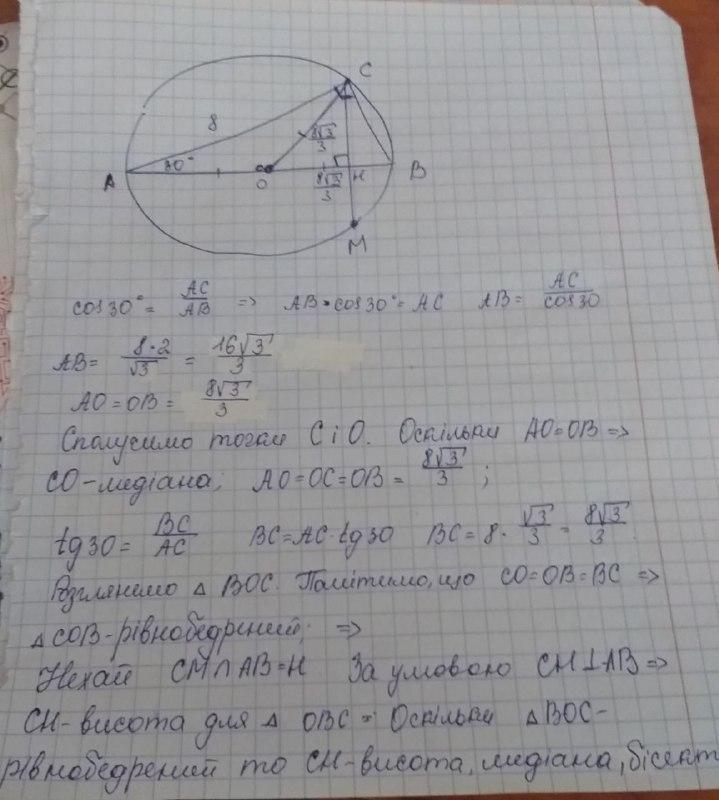 C
8
8√3/3
30°
A
O
8√3/3
H
B
M
cos30° = AC/AB => AB·cos30° = AC AB = AC/cos30
AB = 8·2/√3 = 16√3/3
AO = OB = 8√3/3
Сполусимо точки C і O. Оскільки AO=OB =>
CO-медіана; AO=OC=OB = 8√3/3 ;
tg30 = BC/AC BC=AC·tg30 BC=8·√3/3 = 8√3/3.
Розглянемо △ BOC. Помітимо, що CO=OB=BC =>
△COB-рівнобедрений; =>
Нехай CM∩AB=H За умовою CH⊥AB =>
CH-висота для △ OBC = Оскільки △BOC-
рівнобедрений то CH-висота, медіана, бісект